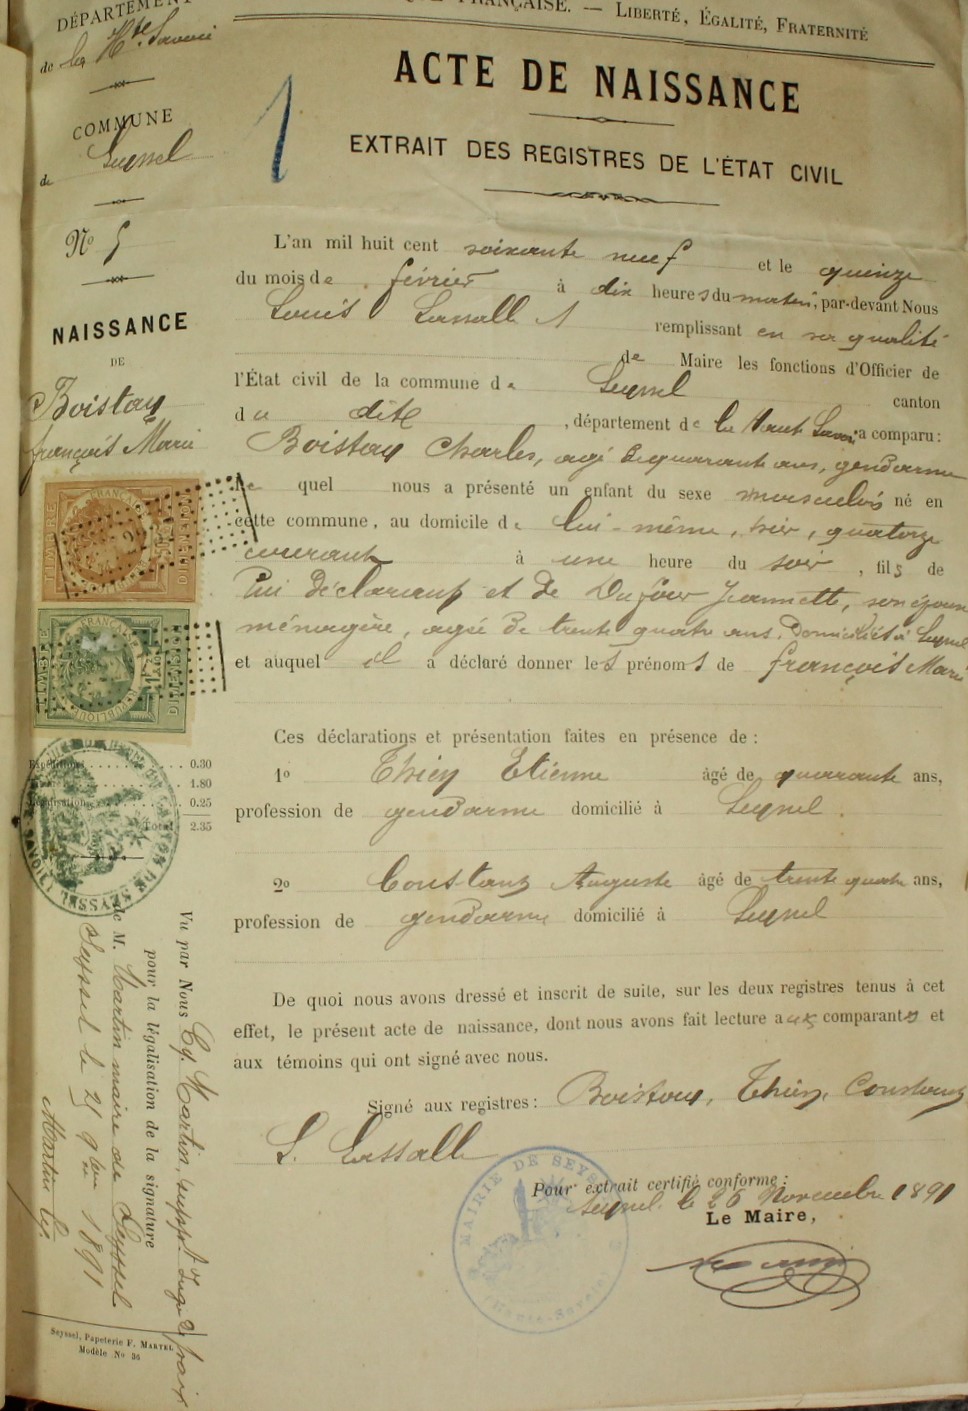 DÉPARTEMENT
de la Hte Savoie
COMMUNE
de Seyssel
No 5
NAISSANCE
DE
Boistouy
françois Marie
FRANÇAISE. — LIBERTÉ, ÉGALITÉ, FRATERNITÉ
ACTE DE NAISSANCE
1
EXTRAIT DES REGISTRES DE L'ÉTAT CIVIL
L'an mil huit cent soixante neuf et le quinze
du mois de février à dix heures du matin, par-devant Nous
Louis Lassalle remplissant en sa qualité
de Maire les fonctions d'Officier de
l'État civil de la commune de Seyssel canton
du dit, département de la Haute Savoie a comparu :
Boistouy Charles, agé de quarante ans, gendarme
le quel nous a présenté un enfant du sexe masculin né en
cette commune, au domicile de lui-même, hier, quatorze
courant à une heure du soir, fils de
lui déclarant et de Dufour Jeannette, son épouse
ménagère, agée de trente quatre ans, Domiciliés à Seyssel
et auquel il a déclaré donner les prénoms de françois Marie
Ces déclarations et présentation faites en présence de :
1o Thiey Etienne âgé de quarante ans,
profession de gendarme domicilié à Seyssel.
2o Constanz Auguste âgé de trente quatre ans,
profession de gendarme domicilié à Seyssel
De quoi nous avons dressé et inscrit de suite, sur les deux registres tenus à cet
effet, le présent acte de naissance, dont nous avons fait lecture aux comparants et
aux témoins qui ont signé avec nous.
Signé aux registres : Boistouy, Thiey, Constanz
L. Lassalle
Pour extrait certifié conforme :
Seyssel le 25 Novembre 1891
Le Maire,
MAIRIE DE SEYSSEL
(Haute-Savoie)
TIMBRE
FRANÇAISE
TIMBRE
FRANÇAISE
REPUBLIQUE
Expéditions 0.30
1.80
Légalisation 0.25
Total 2.35
CANTON DE SEYSSEL
Vu par Nous Cy. Martin, suppt. Juge de paix
pour la légalisation de la signature
de M. Martin maire de Seyssel
Seyssel le 25 9bre 1891
Martin Cy.
Seyssel, Papeterie F. MARTEL
Modèle No 36